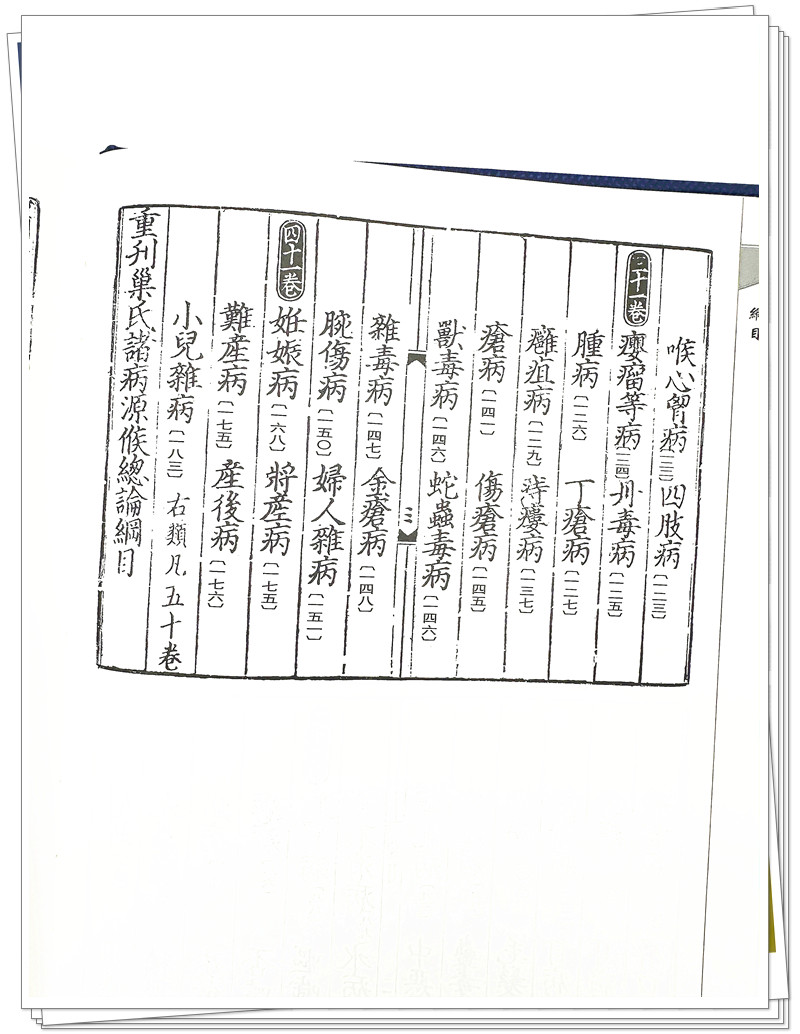 綱目
喉心胷病〔一二三〕四肢病〔一二三〕
三十一卷 癭瘤等病〔一二四〕丹毒病〔一二五〕
腫病〔一二六〕丁瘡病〔一二七〕
癰疽病〔一二九〕痔瘻病〔一三七〕
瘡病〔一四一〕傷瘡病〔一四五〕
獸毒病〔一四六〕蛇蟲毒病〔一四六〕
三
雜毒病〔一四七〕金瘡病〔一四八〕
腕傷病〔一五〇〕婦人雜病〔一五一〕
四十一卷 妊娠病〔一六八〕將産病〔一七五〕
難産病〔一七五〕産後病〔一七六〕
小兒雜病〔一八三〕右類凡五十卷
重刋巢氏諸病源候總論綱目